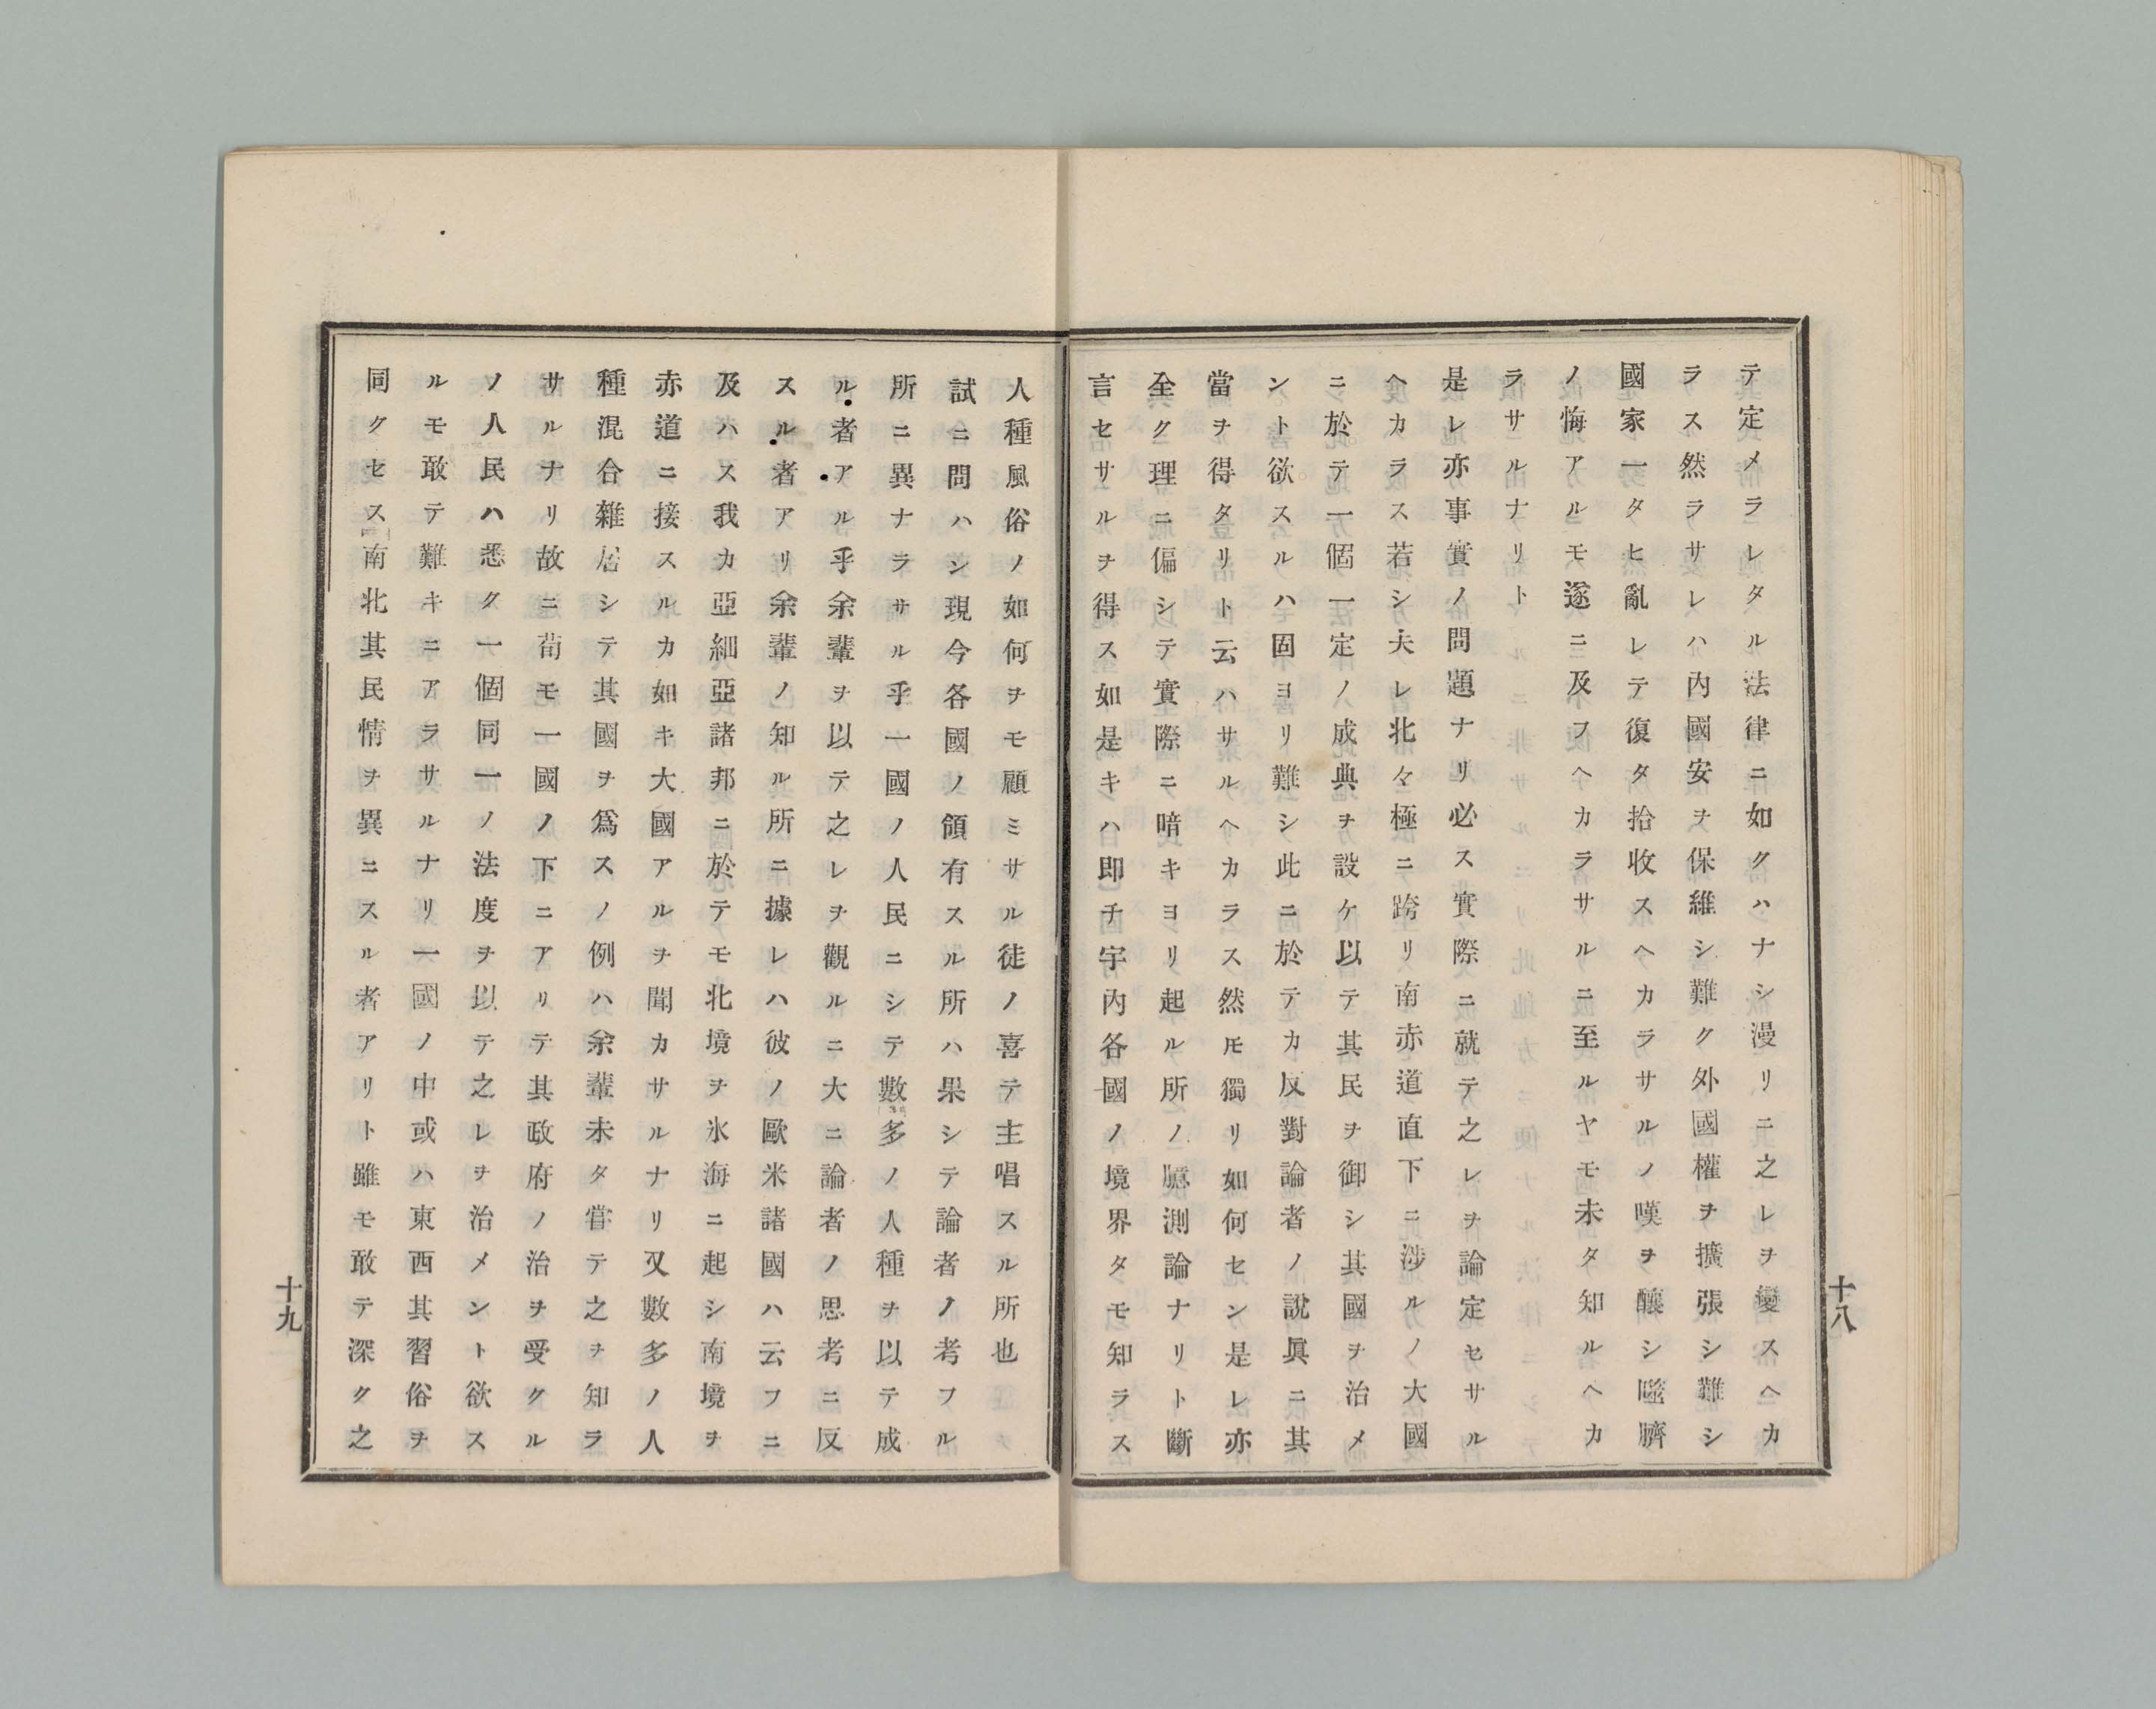 テ定メラレタル法律ニ如クハナシ漫リニ之レヲ變スヘカ
ラス然ラサレハ內國安ヲ保維シ難ク外國權ヲ擴張シ難シ
國家一タヒ亂レテ復タ拾收スヘカラサルノ嘆ヲ釀シ噬臍
ノ悔アルモ遂ニ及フヘカラサルニ至ルヤモ未タ知ルヘカ
ラサルナリト
是レ亦事實ノ問題ナリ必ス實際ニ就テ之レヲ論定セサル
ヘカラス若シ夫レ北々極ニ跨リ南赤道直下ニ涉ルノ大國
ニ於テ一個一定ノ成典ヲ設ケ以テ其民ヲ御シ其國ヲ治メ
ント欲スルハ固ヨリ難シ此ニ於テカ反對論者ノ說眞ニ其
當ヲ得タリト云ハサルヘカラス然モ獨リ如何セン是レ亦
全ク理ニ偏シテ實際ニ暗キヨリ起ル所ノ臆測論ナリト斷
言セサルヲ得ス如是キハ卽チ宇內各國ノ境界タモ知ラス
十八
人種風俗ノ如何ヲモ顧ミサル徒ノ喜テ主唱スル所也
試ニ問ハン現今各國ノ領有スル所ハ果シテ論者ノ考フル
所ニ異ナラサル乎一國ノ人民ニシテ數多ノ人種ヲ以テ成
ル者アル乎余輩ヲ以テ之レヲ觀ルニ大ニ論者ノ思考ニ反
スル者アリ余輩ノ知ル所ニ據レハ彼ノ歐米諸國ハ云フニ
及ハス我カ亞細亞諸邦ニ於テモ北境ヲ氷海ニ起シ南境ヲ
赤道ニ接スルカ如キ大國アルヲ聞カサルナリ又數多ノ人
種混合雜居シテ其國ヲ爲スノ例ハ余輩未タ甞テ之ヲ知ラ
サルナリ故ニ苟モ一國ノ下ニアリテ其政府ノ治ヲ受クル
ノ人民ハ悉ク一個同一ノ法度ヲ以テ之レヲ治メント欲ス
ルモ敢テ難キニアラサルナリ一國ノ中或ハ東西其習俗ヲ
同クセス南北其民情ヲ異ニスル者アリト雖モ敢テ深ク之
十九